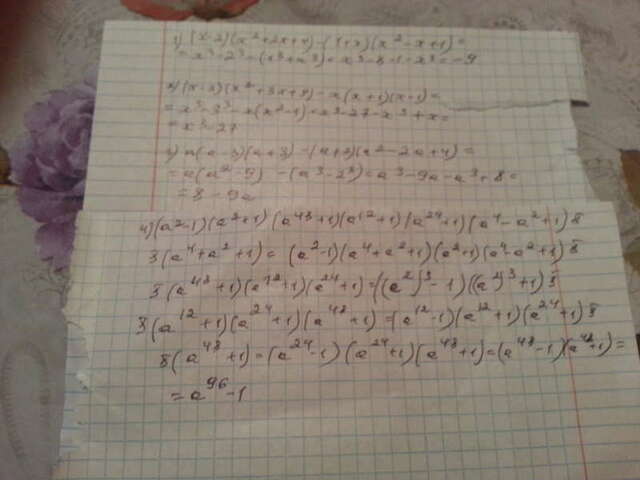 1) (x-2)(x²+2x+4)-(1+x)(x²-x+1)=
= x³-2³-(x³+1³)= x³-8-1-x³=-9
2) (x-3)(x²+3x+9)-x(x+1)(x-1)=
= x³-3³-x(x²-1)=x³-27-x³+x=
= x-27
3) a(a-3)(a+3)-(a+2)(a²-2a+4)=
= a(a²-9)-(a³-2³)=a³-9a-a³+8=
= 8-9a
4) (a²-1)(a²+1)(a⁴⁸+1)(a¹²+1)(a²⁴+1)(a⁴-a²+1)
(a⁴+a²+1)= (a²-1)(a⁴+a²+1)(a²+1)(a⁴-a²+1)
(a⁴⁸+1)(a¹²+1)(a²⁴+1)=((a²)³-1)((a²)³+1)
(a¹²+1)(a²⁴+1)(a⁴⁸+1)=(a¹²-1)(a¹²+1)(a²⁴+1)
(a⁴⁸+1)=(a²⁴-1)(a²⁴+1)(a⁴⁸+1)=(a⁴⁸-1)(a⁴⁸+1)=
= a⁹⁶-1